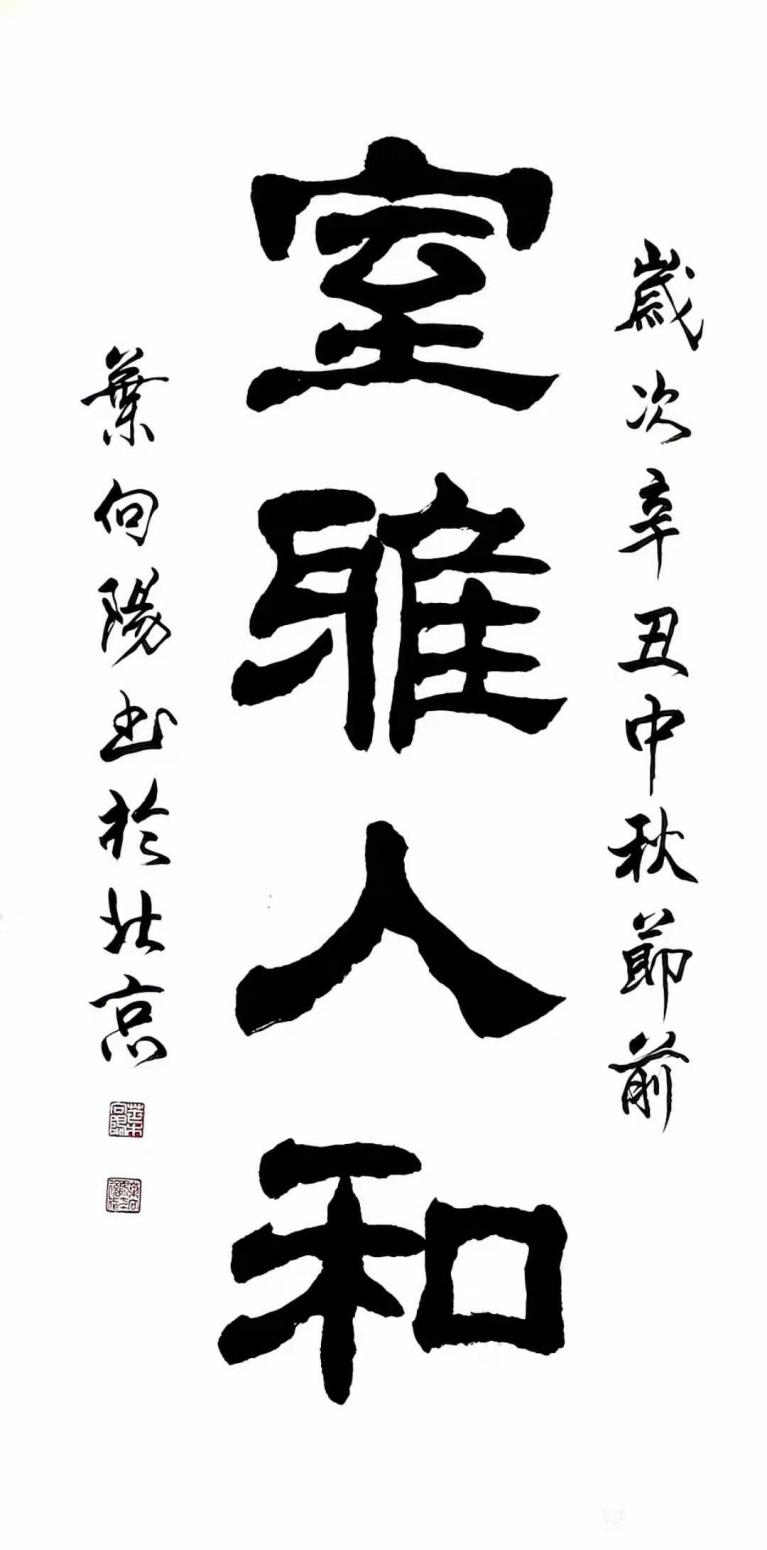 歲次辛丑中秋節前
室雅人和
葉向陽書於北京